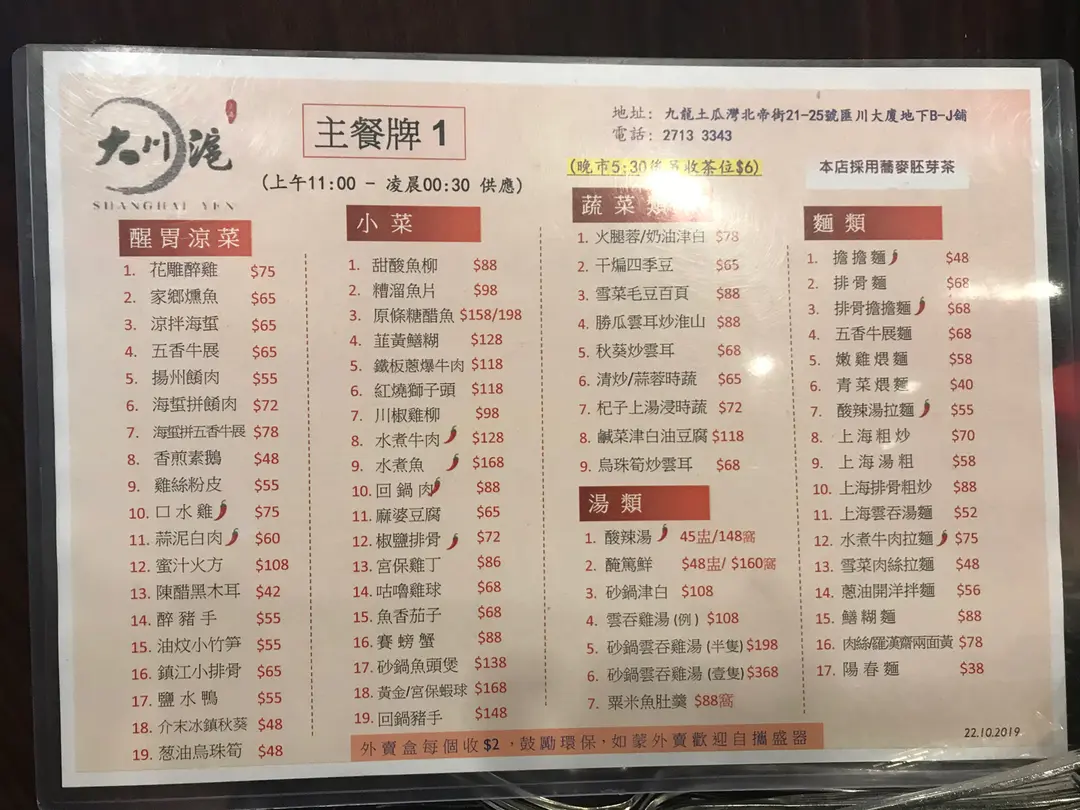 大川滬
SHANGHAI YEN
主餐牌 1
(上午11:00 - 凌晨00:30 供應)
地址: 九龍土瓜灣北帝街21-25號匯川大廈地下B-J舖
電話: 2713 3343
(晚市5:30後另收茶位$6)
本店採用蕎麥胚芽茶
醒胃涼菜
1. 花雕醉雞 $75
2. 家鄉燻魚 $65
3. 涼拌海蜇 $65
4. 五香牛展 $65
5. 揚州餚肉 $55
6. 海蜇拼餚肉 $72
7. 海蜇拼五香牛展 $78
8. 香煎素鵝 $48
9. 雞絲粉皮 $55
10. 口水雞 $75
11. 蒜泥白肉 $60
12. 蜜汁火方 $108
13. 陳醋黑木耳 $42
14. 醉豬手 $55
15. 油炆小竹笋 $55
16. 鎮江小排骨 $65
17. 鹽水鴨 $55
18. 介末冰鎮秋葵 $48
19. 葱油烏珠筍 $48
小菜
1. 甜酸魚柳 $88
2. 糟溜魚片 $98
3. 原條糖醋魚 $158/198
4. 韮黃鱔糊 $128
5. 鐵板蔥爆牛肉 $118
6. 紅燒獅子頭 $118
7. 川椒雞柳 $98
8. 水煮牛肉 $128
9. 水煮魚 $168
10. 回鍋肉 $88
11. 麻婆豆腐 $65
12. 椒鹽排骨 $72
13. 宮保雞丁 $86
14. 咕嚕雞球 $68
15. 魚香茄子 $68
16. 賽螃蟹 $88
17. 砂鍋魚頭煲 $138
18. 黃金/宮保蝦球 $168
19. 回鍋豬手 $148
蔬菜類
1. 火腿蓉/奶油津白 $78
2. 干煸四季豆 $65
3. 雪菜毛豆百頁 $88
4. 勝瓜雲耳炒淮山 $88
5. 秋葵炒雲耳 $68
6. 清炒/蒜蓉時蔬 $65
7. 杞子上湯浸時蔬 $72
8. 鹹菜津白油豆腐 $118
9. 烏珠筍炒雲耳 $68
湯類
1. 酸辣湯 45盅/148窩
2. 醃篤鮮 $48盅/ $160窩
3. 砂鍋津白 $108
4. 雲吞雞湯 (例) $108
5. 砂鍋雲吞雞湯 (半隻) $198
6. 砂鍋雲吞雞湯 (壹隻) $368
7. 粟米魚肚羹 $88窩
麵類
1. 擔擔麵 $48
2. 排骨麵 $68
3. 排骨擔擔麵 $68
4. 五香牛展麵 $68
5. 嫩雞煨麵 $58
6. 青菜煨麵 $40
7. 酸辣湯拉麵 $55
8. 上海粗炒 $70
9. 上海湯粗 $58
10. 上海排骨粗炒 $88
11. 上海雲吞湯麵 $52
12. 水煮牛肉拉麵 $75
13. 雪菜肉絲拉麵 $48
14. 蔥油開洋拌麵 $56
15. 鱔糊麵 $88
16. 肉絲/羅漢齋兩面黃 $78
17. 陽春麵 $38
外賣盒每個收$2，鼓勵環保，如蒙外賣歡迎自攜盛器
22.10.2019